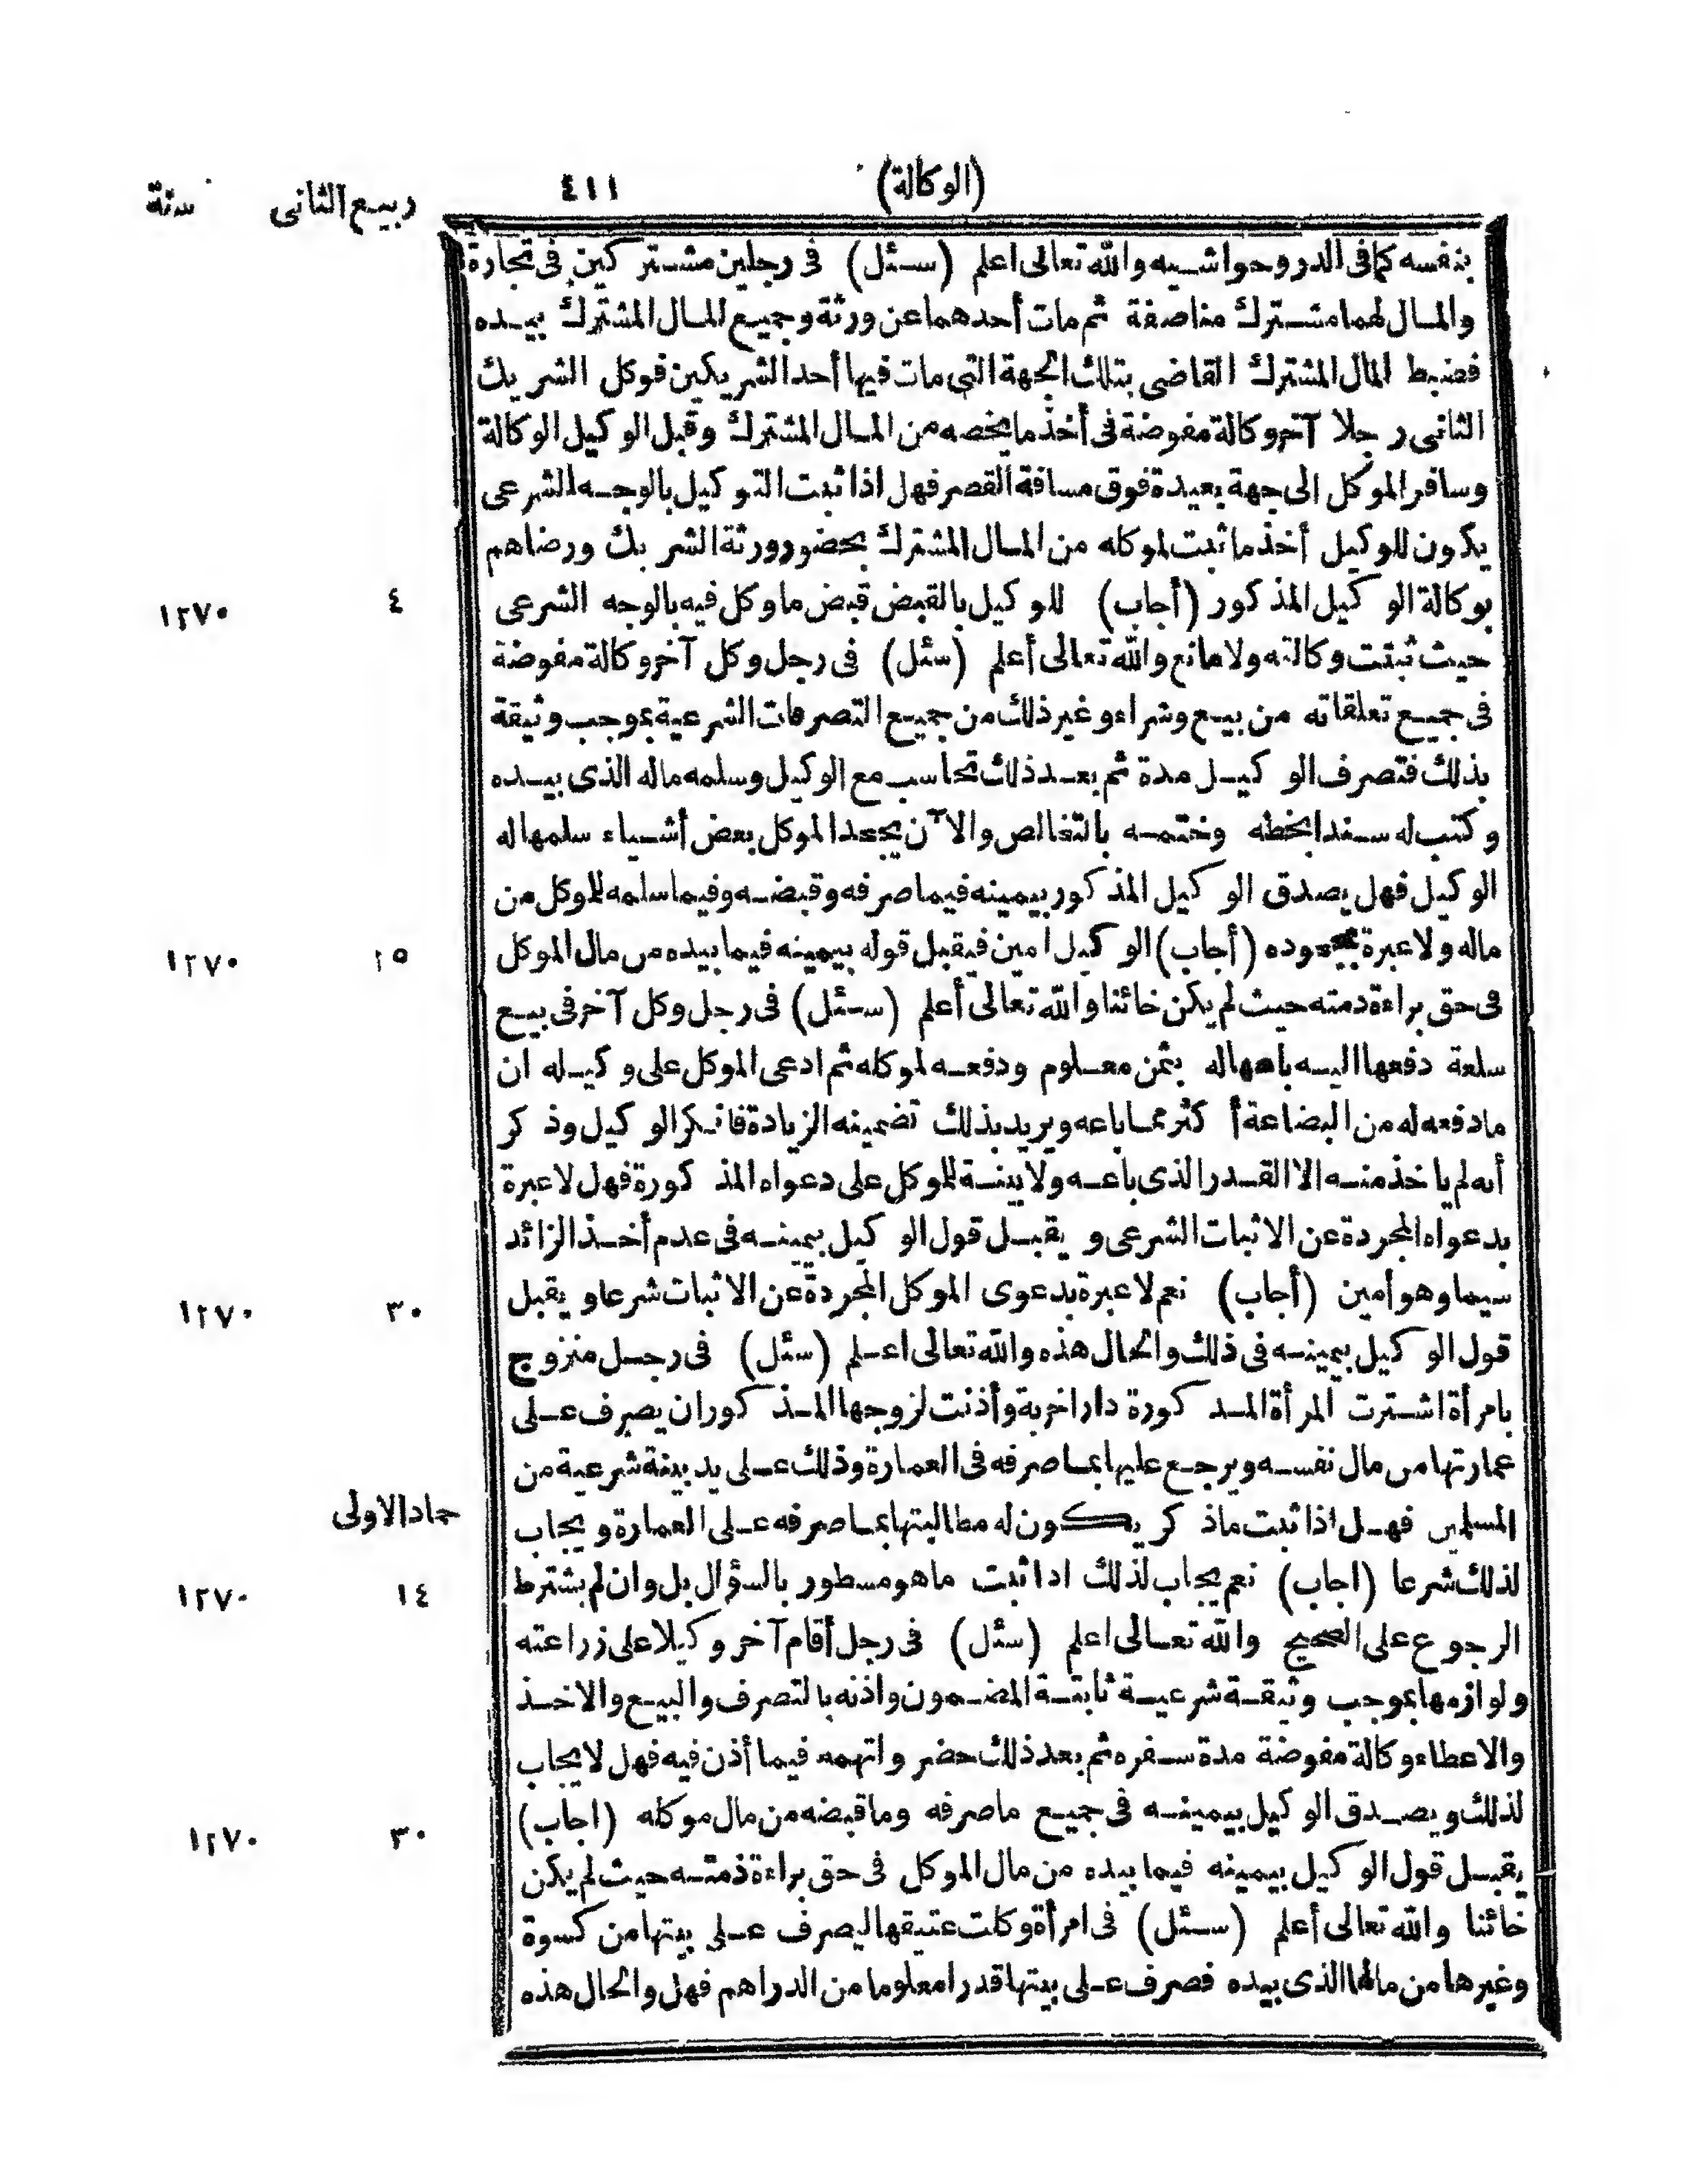 (الوكالة) ٤١١ ربيع الثانى سنة
بنفسه كما فى الدر وحواشيه والله تعالى اعلم (سئل) فى رجلين مشتركين فى تجارة
والمال لهما مشترك مناصفة ثم مات أحدهما عن ورثة وجميع المال المشترك بيده
فضبط المال المشترك القاضى بتلك الجهة التى مات فيها أحد الشريكين فوكل الشريك
الثانى رجلا آخر وكالة مفوضة فى أخذ ما يخصه من المال المشترك وقبل الوكيل الوكالة
وسافر الموكل الى جهة بعيدة فوق مسافة القصر فهل اذا ثبت التوكيل بالوجه الشرعى
يكون للوكيل أخذ ما ثبت لموكله من المال المشترك بحضور ورثة الشريك ورضاهم
بوكالة الوكيل المذكور (أجاب) للوكيل بالقبض قبض ما وكل فيه بالوجه الشرعى ٤ ١٢٧٠
حيث ثبتت وكالته ولا مانع والله تعالى أعلم (سئل) فى رجل وكل آخر وكالة مفوضة
فى جميع تعلقاته من بيع وشراء وغير ذلك من جميع التصرفات الشرعية بموجب وثيقة
بذلك فتصرف الوكيل مدة ثم بعد ذلك تحاسب مع الوكيل وسلمه ماله الذى بيده
وكتب له سندا بخطه وختمه بالتخالص والآن يجحد الموكل بعض أشياء سلمها له
الوكيل فهل يصدق الوكيل المذكور بيمينه فيما صرفه وقبضه وفيما سلمه للموكل من
ماله ولا عبرة بجحوده (أجاب) الوكيل أمين فيقبل قوله بيمينه فيما بيده من مال الموكل ١٥ ١٢٧٠
فى حق براءة ذمته حيث لم يكن خائنا والله تعالى أعلم (سئل) فى رجل وكل آخر فى بيع
سلعة دفعها اليه باعها له بثمن معلوم ودفعه لموكله ثم ادعى الموكل على وكيله ان
ما دفعه له من البضاعة أكثر مما باعه ويريد بذلك تضمينه الزيادة فانكر الوكيل وذكر
أنه لم ياخذ منه الا القدر الذى باعه ولا بينة للموكل على دعواه المذكورة فهل لا عبرة
بدعواه المجردة عن الاثبات الشرعى ويقبل قول الوكيل بيمينه فى عدم أخذ الزائد
سيما وهو أمين (أجاب) نعم لا عبرة بدعوى الموكل المجردة عن الاثبات شرعا ويقبل ٣٠ ١٢٧٠
قول الوكيل بيمينه فى ذلك والحال هذه والله تعالى اعلم (سئل) فى رجل متزوج
بامرأة اشترت المرأة المذكورة دارا خربة وأذنت لزوجها المذكور ان يصرف على
عمارتها من مال نفسه ويرجع عليها بما صرفه فى العمارة وذلك على يد بينة شرعية من
المسلمين فهل اذا ثبت ما ذكر يكون له مطالبتها بما صرفه على العمارة ويجاب جماد الاولى
لذلك شرعا (اجاب) نعم يجاب لذلك اذا ثبت ما هو مسطور بالسؤال بل وان لم يشترط ١٤ ١٢٧٠
الرجوع على الصحيح والله تعالى اعلم (سئل) فى رجل أقام آخر وكيلا على زراعته
ولوازمها بموجب وثيقة شرعية ثابتة المضمون واذنه بالتصرف والبيع والاخذ
والاعطاء وكالة مفوضة مدة سفره ثم بعد ذلك حضر واتهمه فيما أذن فيه فهل لا يجاب
لذلك ويصدق الوكيل بيمينه فى جميع ما صرفه وما قبضه من مال موكله (اجاب) ٣٠ ١٢٧٠
يقبل قول الوكيل بيمينه فيما بيده من مال الموكل فى حق براءة ذمته حيث لم يكن
خائنا والله تعالى أعلم (سئل) فى امرأة وكلت عتيقها ليصرف على بيتها من كسوة
وغيرها من مالها الذى بيده فصرف على بيتها قدرا معلوما من الدراهم فهل والحال هذه